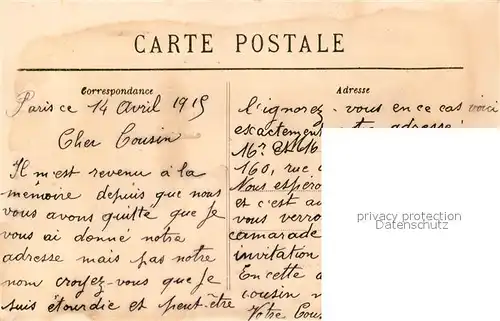 CARTE POSTALE
Correspondance
Adresse
Paris ce 14 Avril 1915
Cher Cousin
Il m'est revenu à la
mémoire depuis que nous
vous avons quitté que je
vous ai donné notre
adresse mais pas notre
nom croyez-vous que je
suis étourdie et peut-être
l'ignorez-vous en ce cas voici
exactement adresse
160, rue
Nous espéro
et c'est au
vous verro
camarade
invitation
En cette a
cousin
Votre Cous
privacy protection
Datenschutz